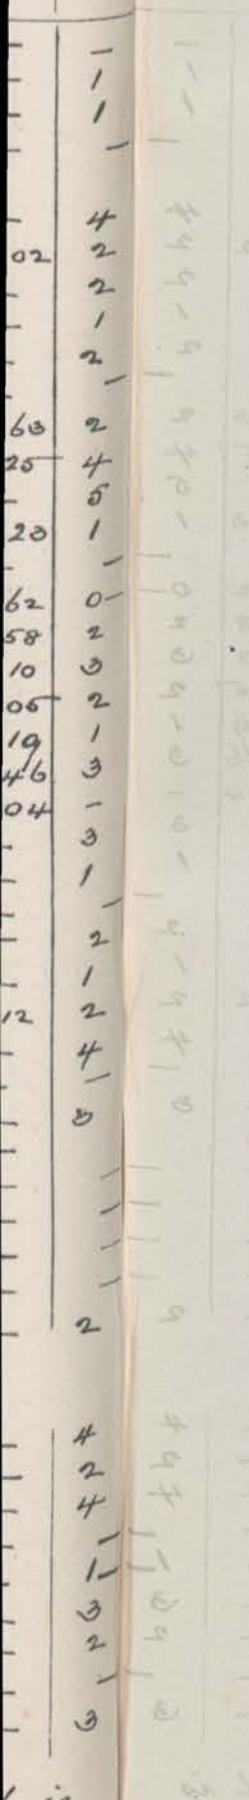 - -
- 1
- 1
- -
- 4
02 2
- 2
- 1
2
- -
63 2
25 4
- 5
23 1
- -
62 0-
58 2
10 3
05 2
19 1
46 3
04 -
- 3
- 1
- -
- 2
- 1
12 2
- 4
- -
- 3
- -
- -
- -
- -
- 2
- 4
- 2
- 4
- -
- 1-
- 3
- 2
- -
- 3